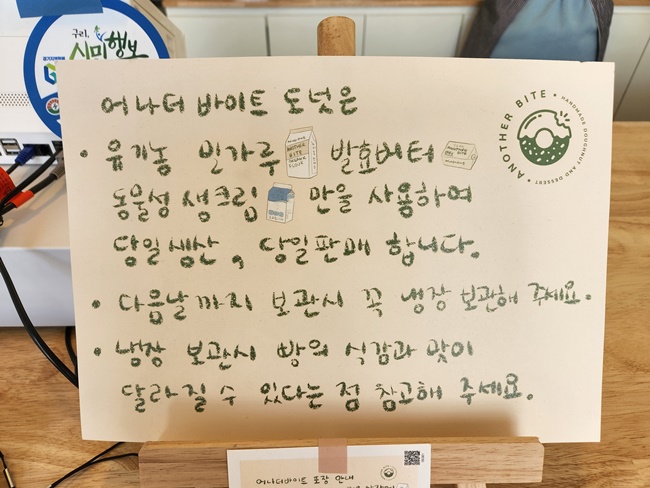 구리, 시민행복
어나더 바이트 도넛은
• 유기농 밀가루 발효버터
동물성 생크림 만을 사용하여
당일생산, 당일판매 합니다.
• 다음날까지 보관시 꼭 냉장보관해 주세요.
• 냉장 보관시 빵의 식감과 맛이
달라질 수 있다는 점 참고해 주세요.
ANOTHER BITE • HANDMADE DOUGHNUT AND DESSERT •
ANOTHER
BITE
어나더바이트 포장 안내